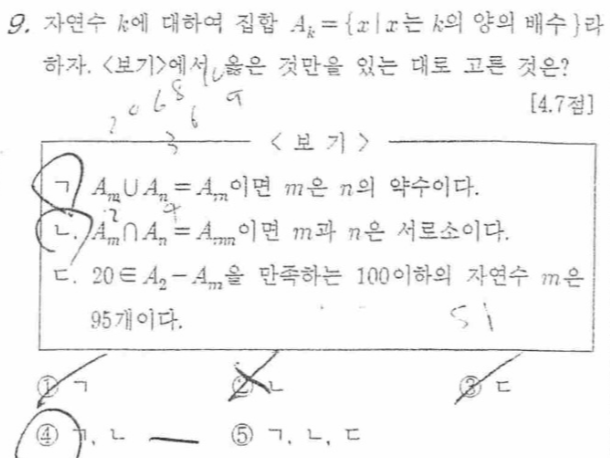 9. 자연수 k에 대하여 집합 A_k = {x | x는 k의 양의 배수}라
하자. <보기>에서 옳은 것만을 있는 대로 고른 것은?
[4.7점]
< 보 기 >
ㄱ. A_m ∪ A_n = A_m이면 m은 n의 약수이다.
ㄴ. A_m ∩ A_n = A_mn이면 m과 n은 서로소이다.
ㄷ. 20 ∈ A_2 - A_m을 만족하는 100이하의 자연수 m은
95개이다.
① ㄱ ② ㄴ ③ ㄷ
④ ㄱ, ㄴ ⑤ ㄱ, ㄴ, ㄷ